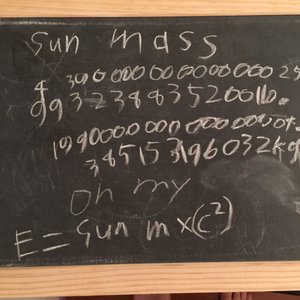 Sun mass
4 390 000 000 000 000 000 25
993238835200lb.
1990000000 000000 000
385153196032kg
Oh my
E = Sun m x(c²)